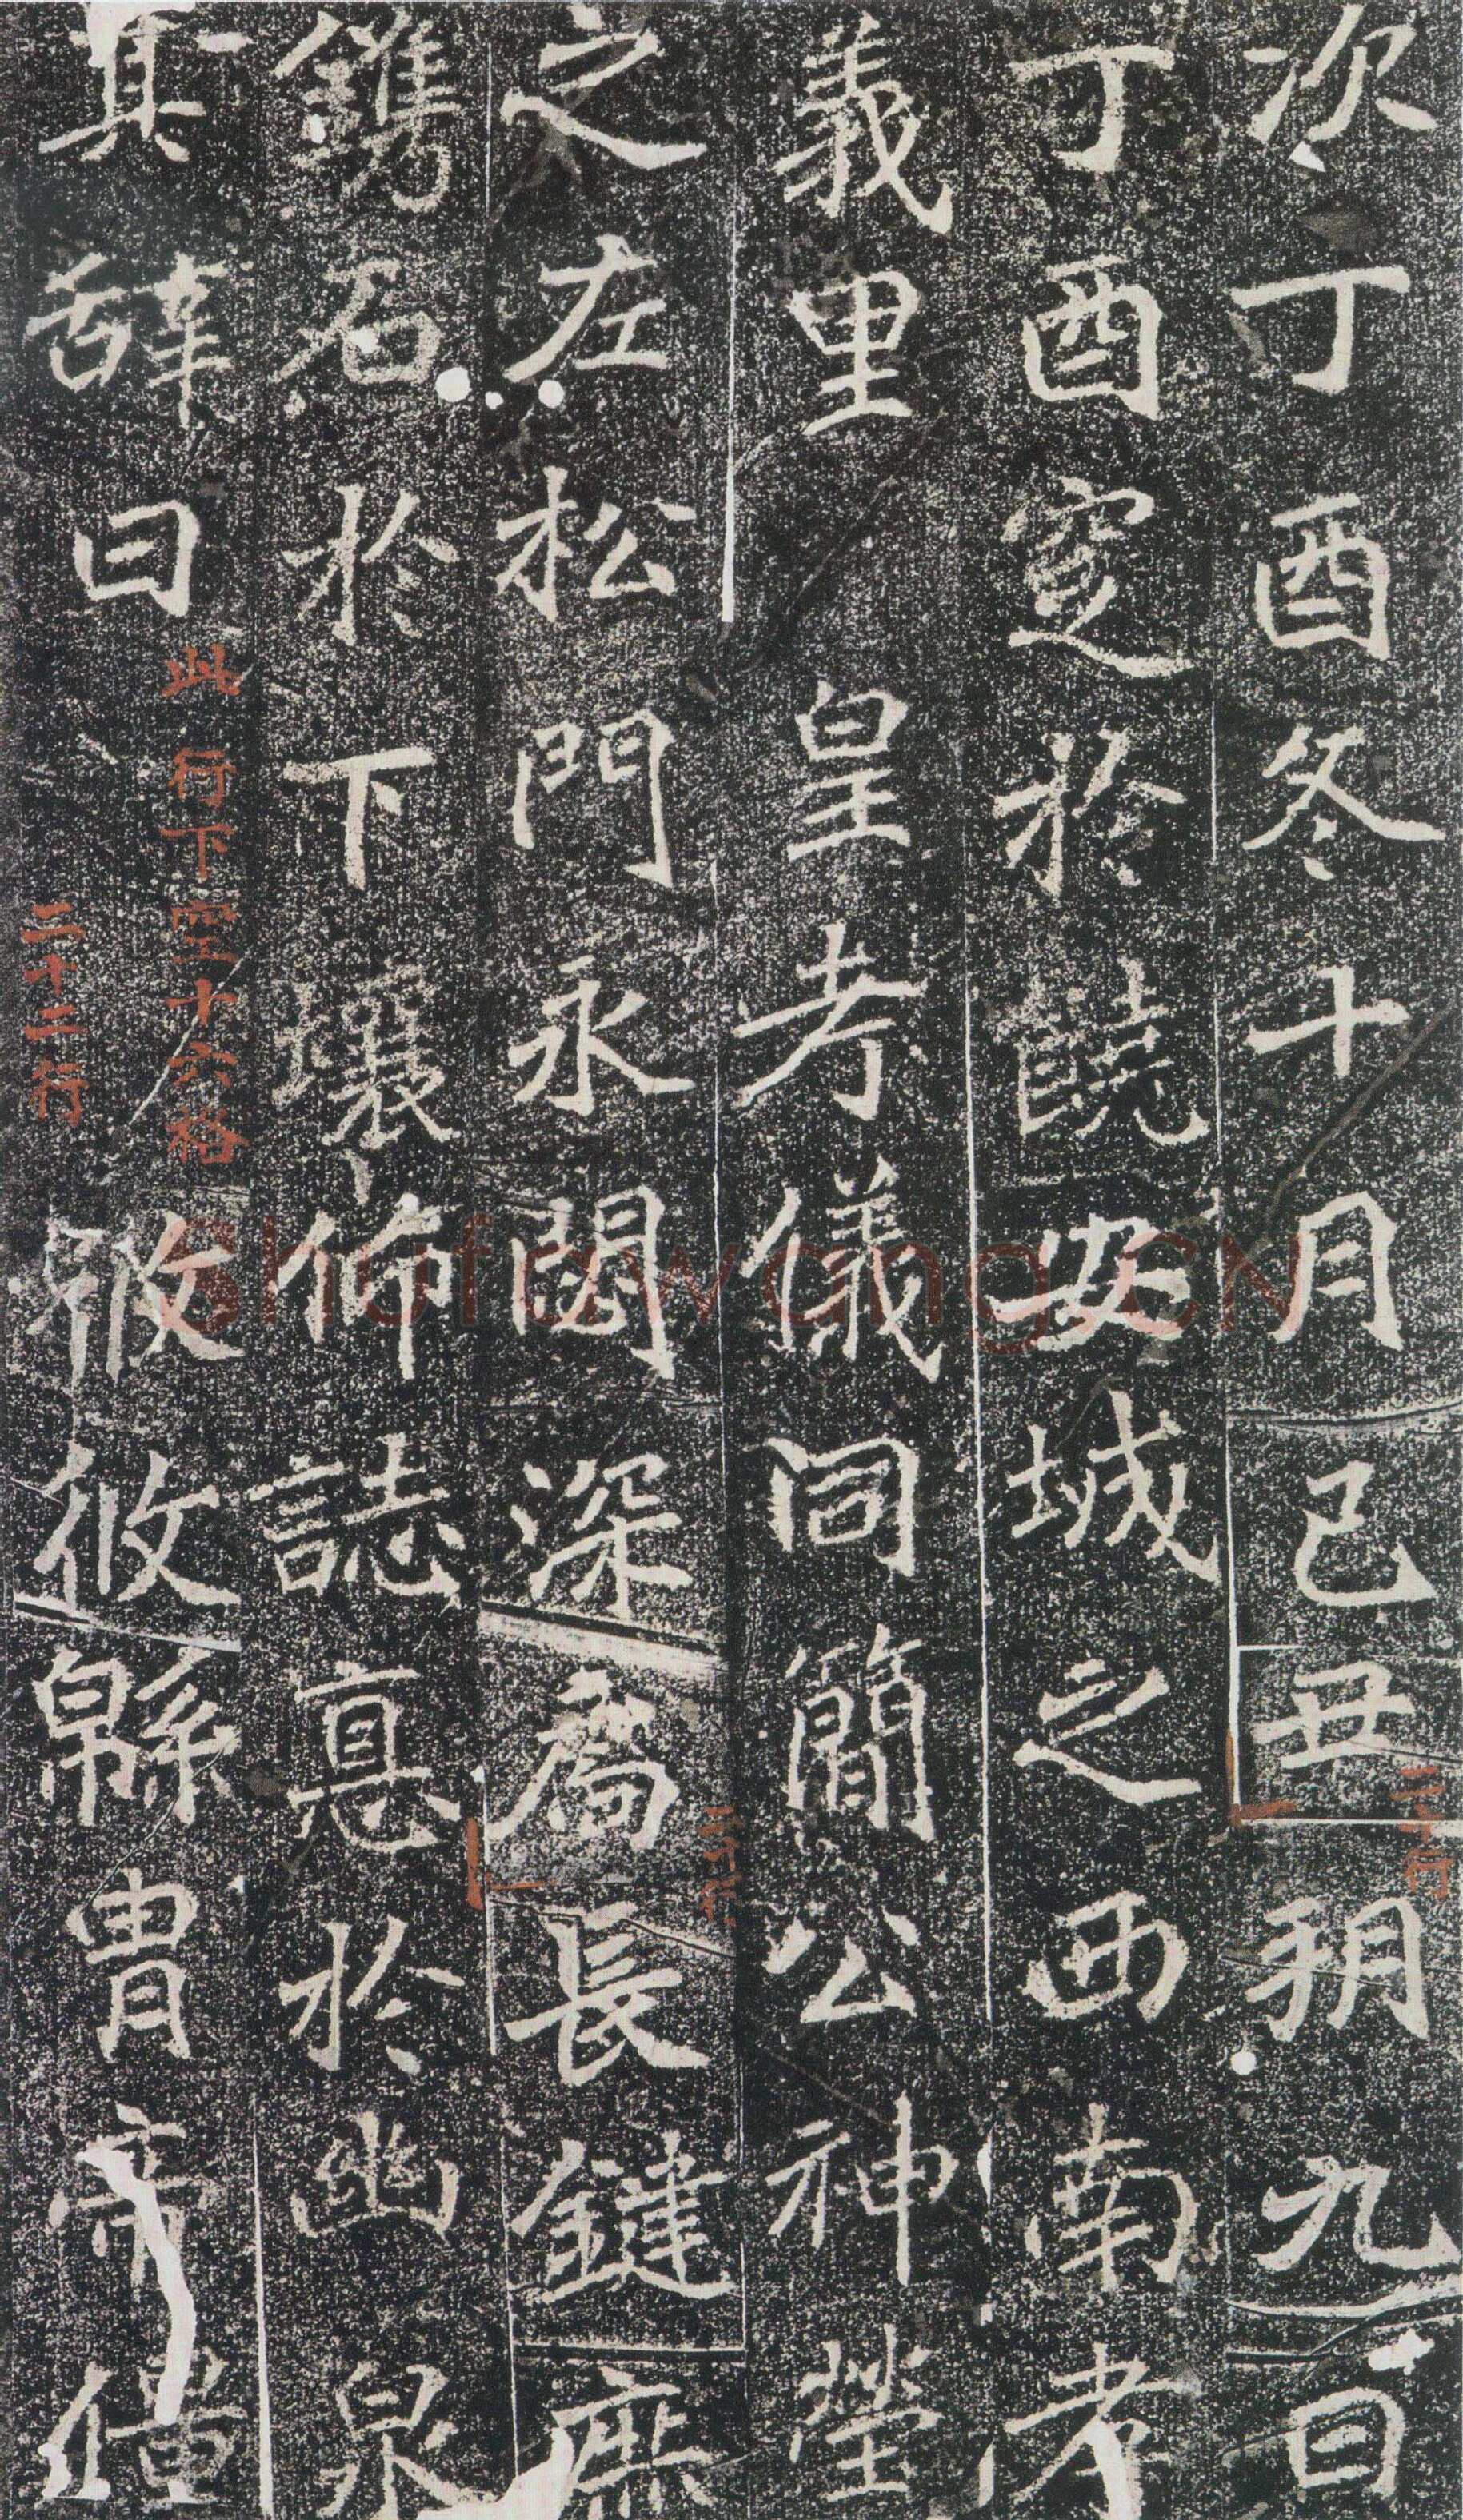 次丁酉冬十月己丑朔九日
丁酉窆於饒安城之西南孝
義里皇考儀同簡公神塋
之左松門永閟深扃長鍵庶
鐫石於下壤仰誌真於幽泉
其辭曰攸攸緜胄
此行下空十六格
二十二行
二十行
Shufawang.CN